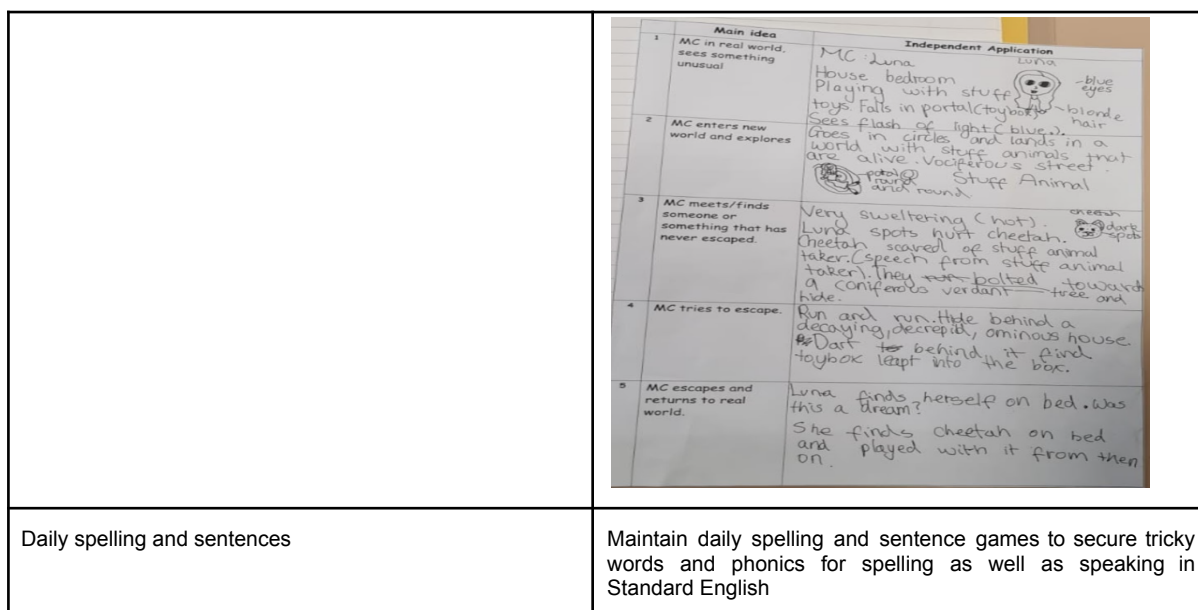 Main idea
Independent Application
1
MC in real world,
sees something
unusual
MC: Luna
House bedroom
Playing with stuff
toys. Falls in portal(toybox)
Sees flash of light (blue.).
Luna
-blue
eyes
blonde
hair
2
MC enters new
world and explores
Goes in circles and lands in a
world with stuff animals that
are alive. Vociferous street.
potal
round
and round
Stuff Animal
3
MC meets/finds
someone or
something that has
never escaped.
Very sweltering (hot).
Luna spots hurt cheetah.
Cheetah scared of stuff animal
taker.(speech from stuff animal
taker). They run bolted towards
a coniferous verdant tree and
hide.
cheetah
dark
spots
4
MC tries to escape.
Run and run. Hide behind a
decaying, decrepid, ominous house.
Dart to behind it find
toybox leapt into the box.
5
MC escapes and
returns to real
world.
Luna finds herself on bed. Was
this a dream?
She finds cheetah on bed
and played with it from then
on.
Daily spelling and sentences
Maintain daily spelling and sentence games to secure tricky
words and phonics for spelling as well as speaking in
Standard English